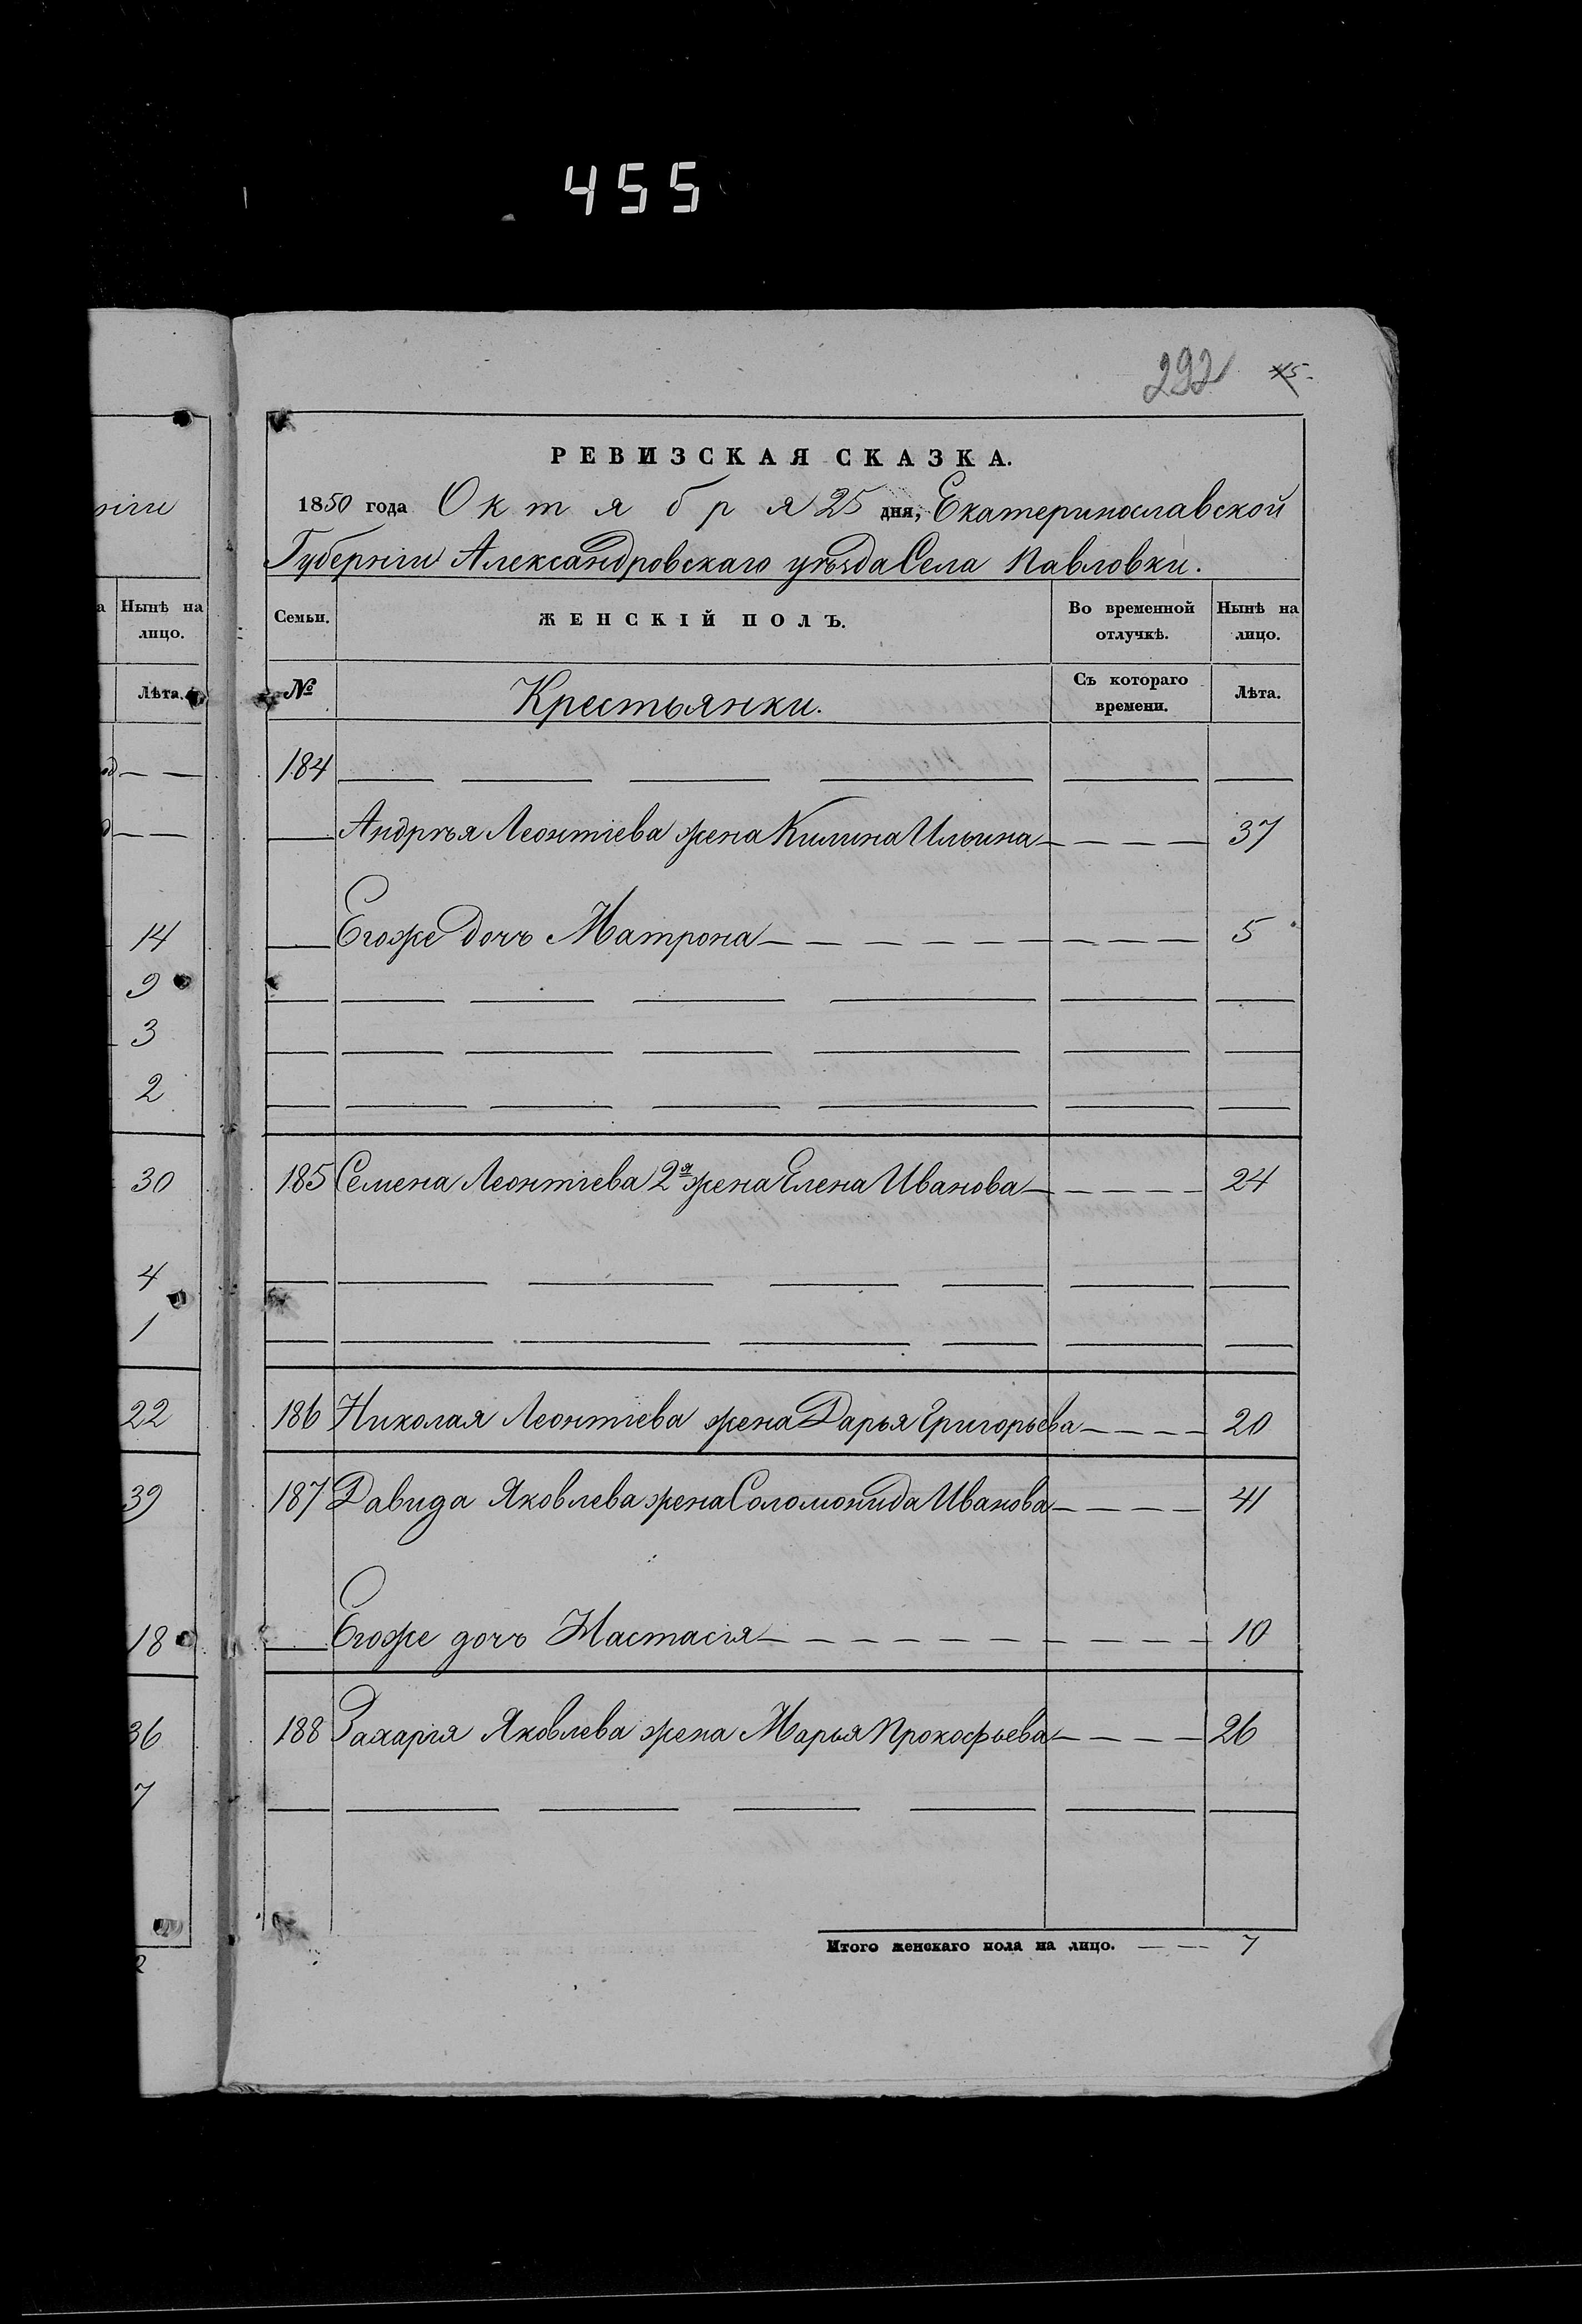 455
292 45.
РЕВИЗСКАЯ СКАЗКА.
1850 года Октября 25 дня, Екатеринославской
Губерніи Александровскаго уѣзда Села Павловки.
Семьи. ЖЕНСКІЙ ПОЛЪ. Во временной отлучкѣ. Нынѣ на лицо.
№ Крестьянки. Съ котораго времени. Лѣта.
184
Андрѣя Леонтіева жена Килина Ильина 37
Егоже дочь Матрона 5
185 Семена Леонтіева 2я жена Елена Иванова 24
186 Николая Леонтіева жена Дарья Григорьева 20
187 Давида Яковлева жена Соломонида Иванова 41
Егоже дочь Настасія 10
188 Захарія Яковлева жена Марья Прокофьева 26
Итого женскаго пола на лицо. 7
ніи
Нынѣ на
лицо.
Лѣта.
14
9
3
2
30
4
1
22
39
18
36
7
2